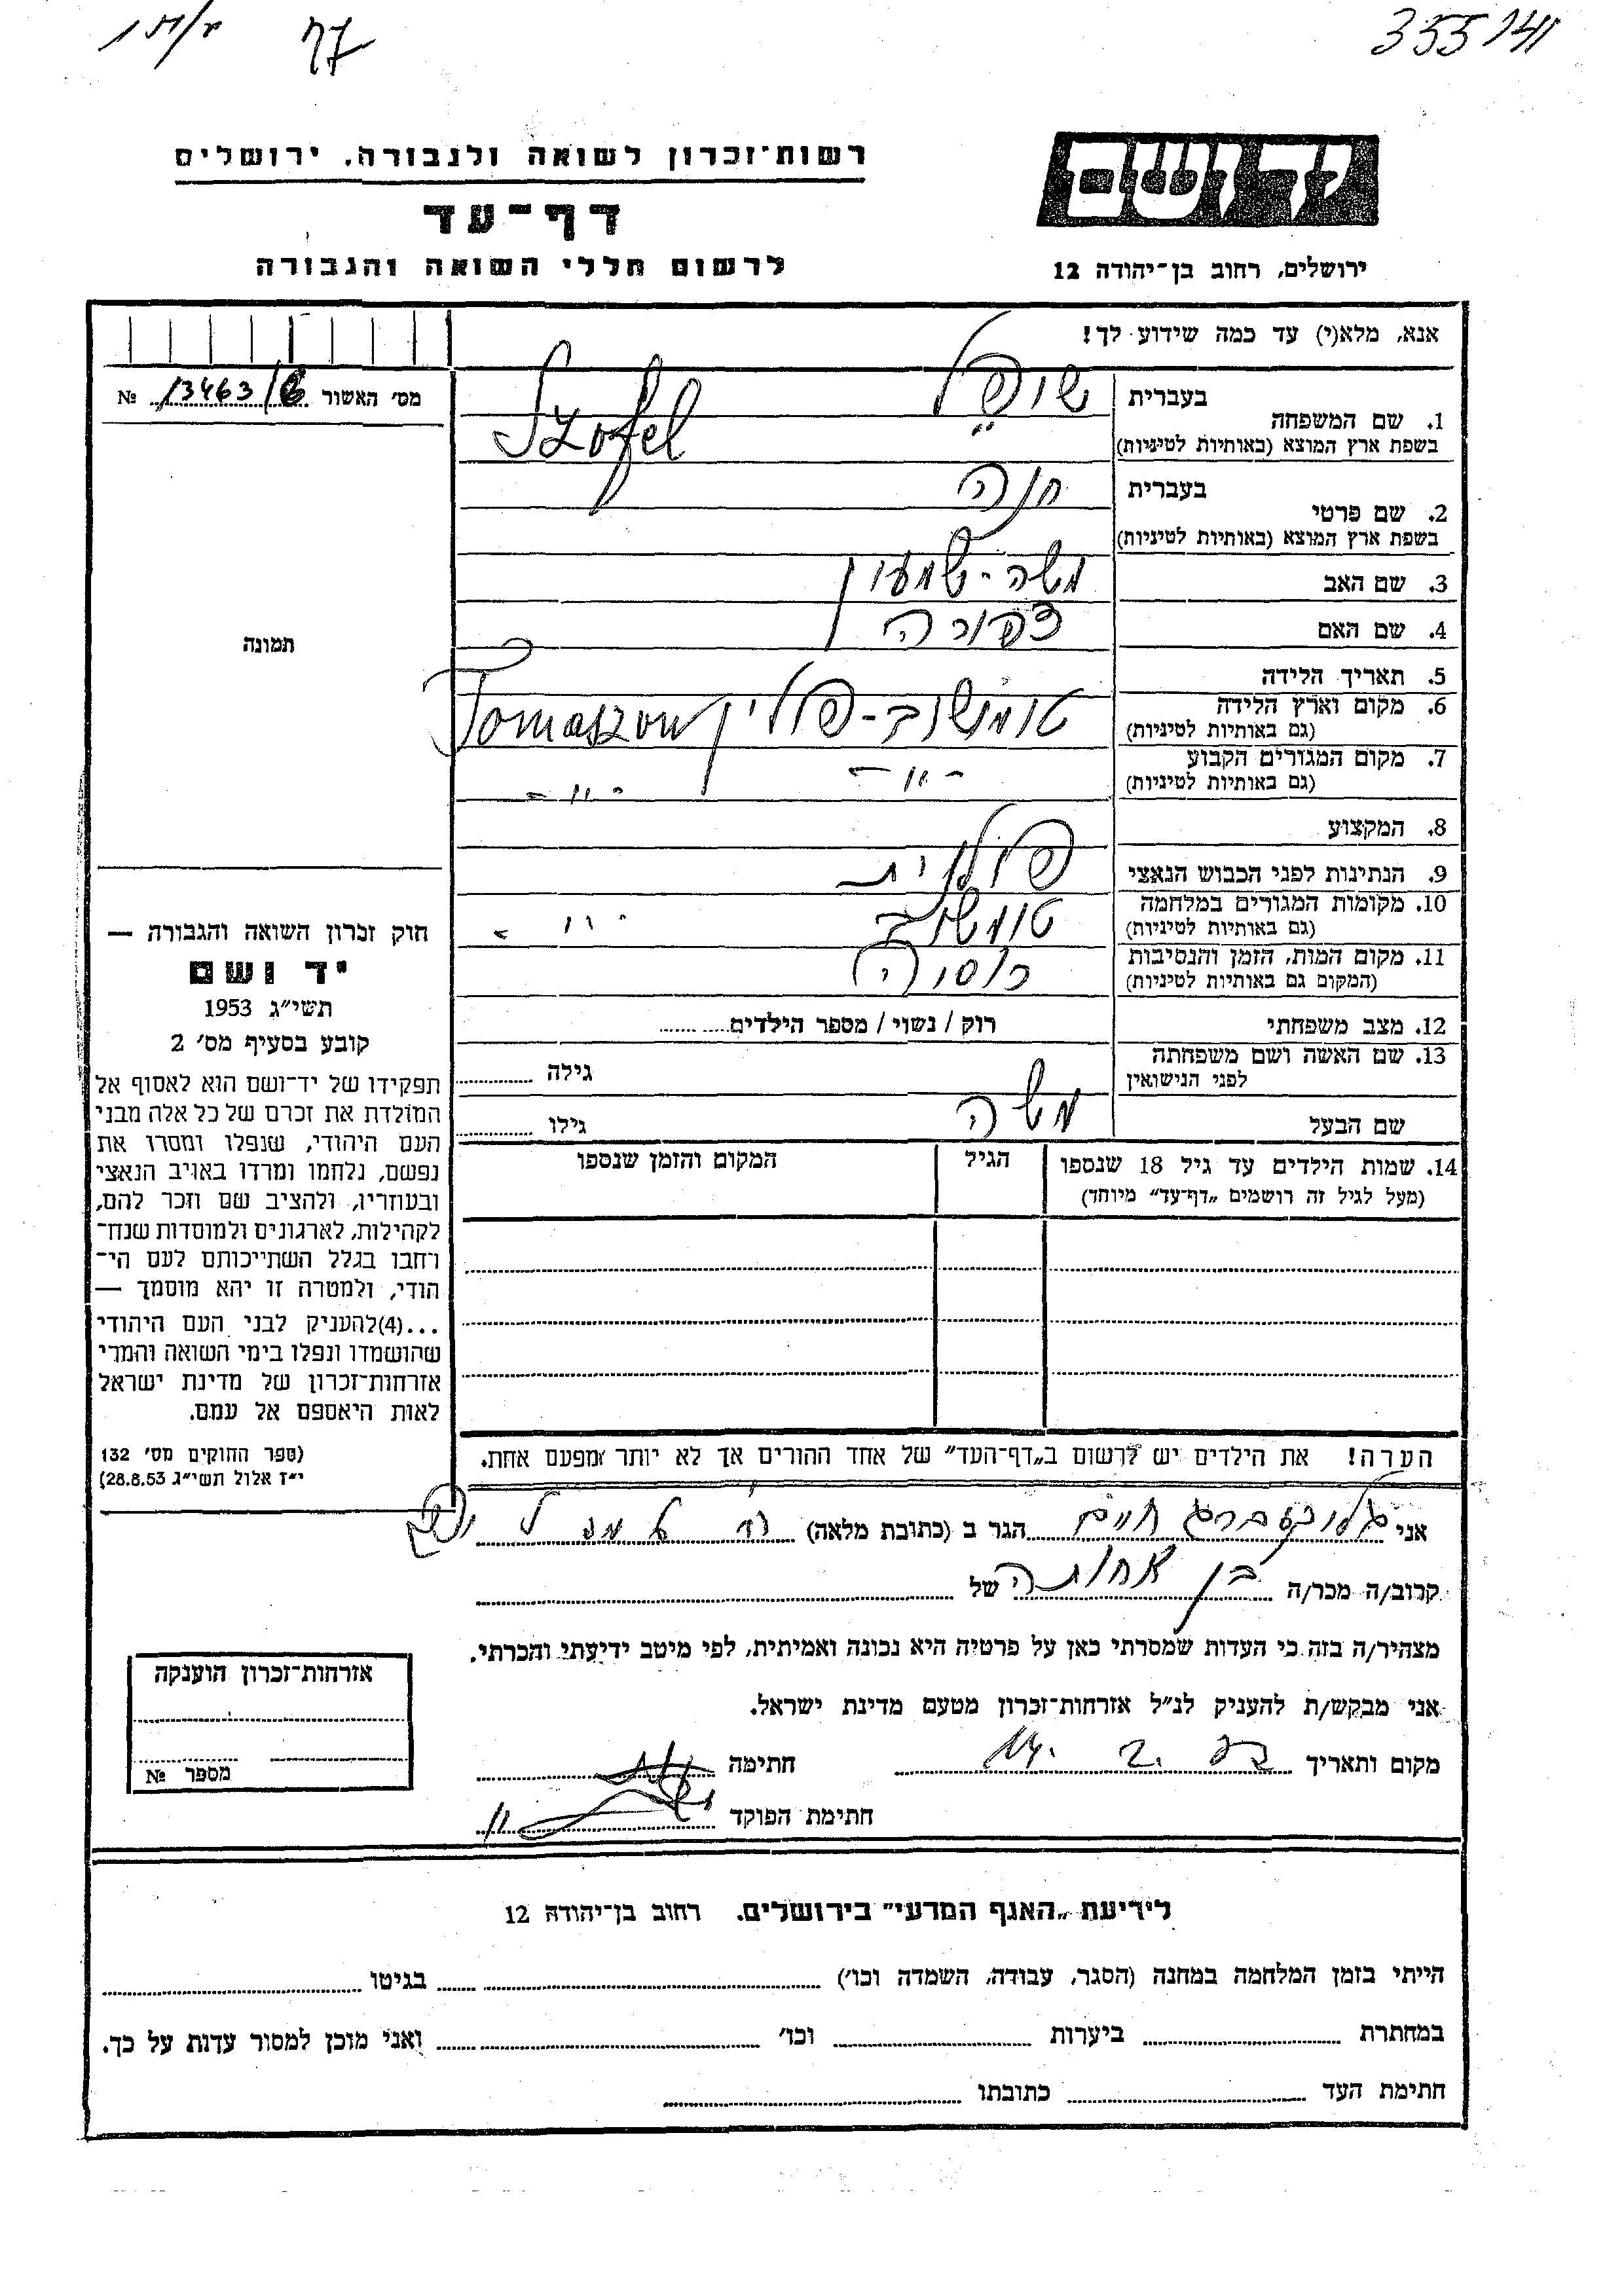 355141
77
יד ושם
רשות-זכרון לשואה ולגבורה, ירושלים
דף-עד
לרשום חללי השואה והגבורה
ירושלים, רחוב בן-יהודה 12
אנא, מלא(י) עד כמה שידוע לך!
מס׳ האשור 13463/6 №
1. שם המשפחה
בעברית שופל
בשפת ארץ המוצא (באותיות לטיניות) Szofel
2. שם פרטי
בעברית חנה
בשפת ארץ המוצא (באותיות לטיניות)
3. שם האב משה-שמעון
4. שם האם צפורה
5. תאריך הלידה
6. מקום וארץ הלידה טומשוב-פולין Tomaszow
(גם באותיות לטיניות)
7. מקום המגורים הקבוע -״- -״-
(גם באותיות לטיניות)
8. המקצוע
9. הנתינות לפני הכבוש הנאצי פולנית
10. מקומות המגורים במלחמה טומשוב -״-
(גם באותיות לטיניות)
11. מקום המות, הזמן והנסיבות
(המקום גם באותיות לטיניות)
12. מצב משפחתי רוק / נשוי / מספר הילדים
13. שם האשה ושם משפחתה גילה
לפני הנישואין
שם הבעל משה גילו
14. שמות הילדים עד גיל 18 שנספו הגיל המקום והזמן שנספו
(מעל לגיל זה רושמים „דף-עד״ מיוחד)
הערה! את הילדים יש לרשום ב„דף-העד״ של אחד ההורים אך לא יותר מפעם אחת.
תמונה
חוק זכרון השואה והגבורה —
יד ושם
תשי״ג 1953
קובע בסעיף מס׳ 2
תפקידו של יד-ושם הוא לאסוף אל
המולדת את זכרם של כל אלה מבני
העם היהודי, שנפלו ומסרו את
נפשם, נלחמו ומרדו באויב הנאצי
ובעוזריו, ולהציב שם וזכר להם,
לקהילות, לארגונים ולמוסדות שנח-
רחבו בגלל השתייכותם לעם הי-
הודי, ולמטרה זו יהא מוסמך —
...(4)להעניק לבני העם היהודי
שהושמדו ונפלו בימי השואה והמרי
אזרחות-זכרון של מדינת ישראל
לאות היאספם אל עמם.
(ספר החוקים מס׳ 132
י״ז אלול תשי״ג 28.8.53)
אני חיים הגר ב (כתובת מלאה)
קרוב/ה מכר/ה בן אחותה של
מצהיר/ה בזה כי העדות שמסרתי כאן על פרטיה היא נכונה ואמיתית, לפי מיטב ידיעתי והכרתי.
אני מבקש/ת להעניק לנ״ל אזרחות-זכרון מטעם מדינת ישראל.
מקום ותאריך חתימה
חתימת הפוקד
אזרחות-זכרון הוענקה
מספר №
לידיעת „האגף המדעי״ בירושלים. רחוב בן-יהודה 12
הייתי בזמן המלחמה במחנה (הסגר, עבודה, השמדה וכו׳) בגיטו
במחתרת ביערות וכו׳ ואני מוכן למסור עדות על כך.
חתימת העד כתובתו